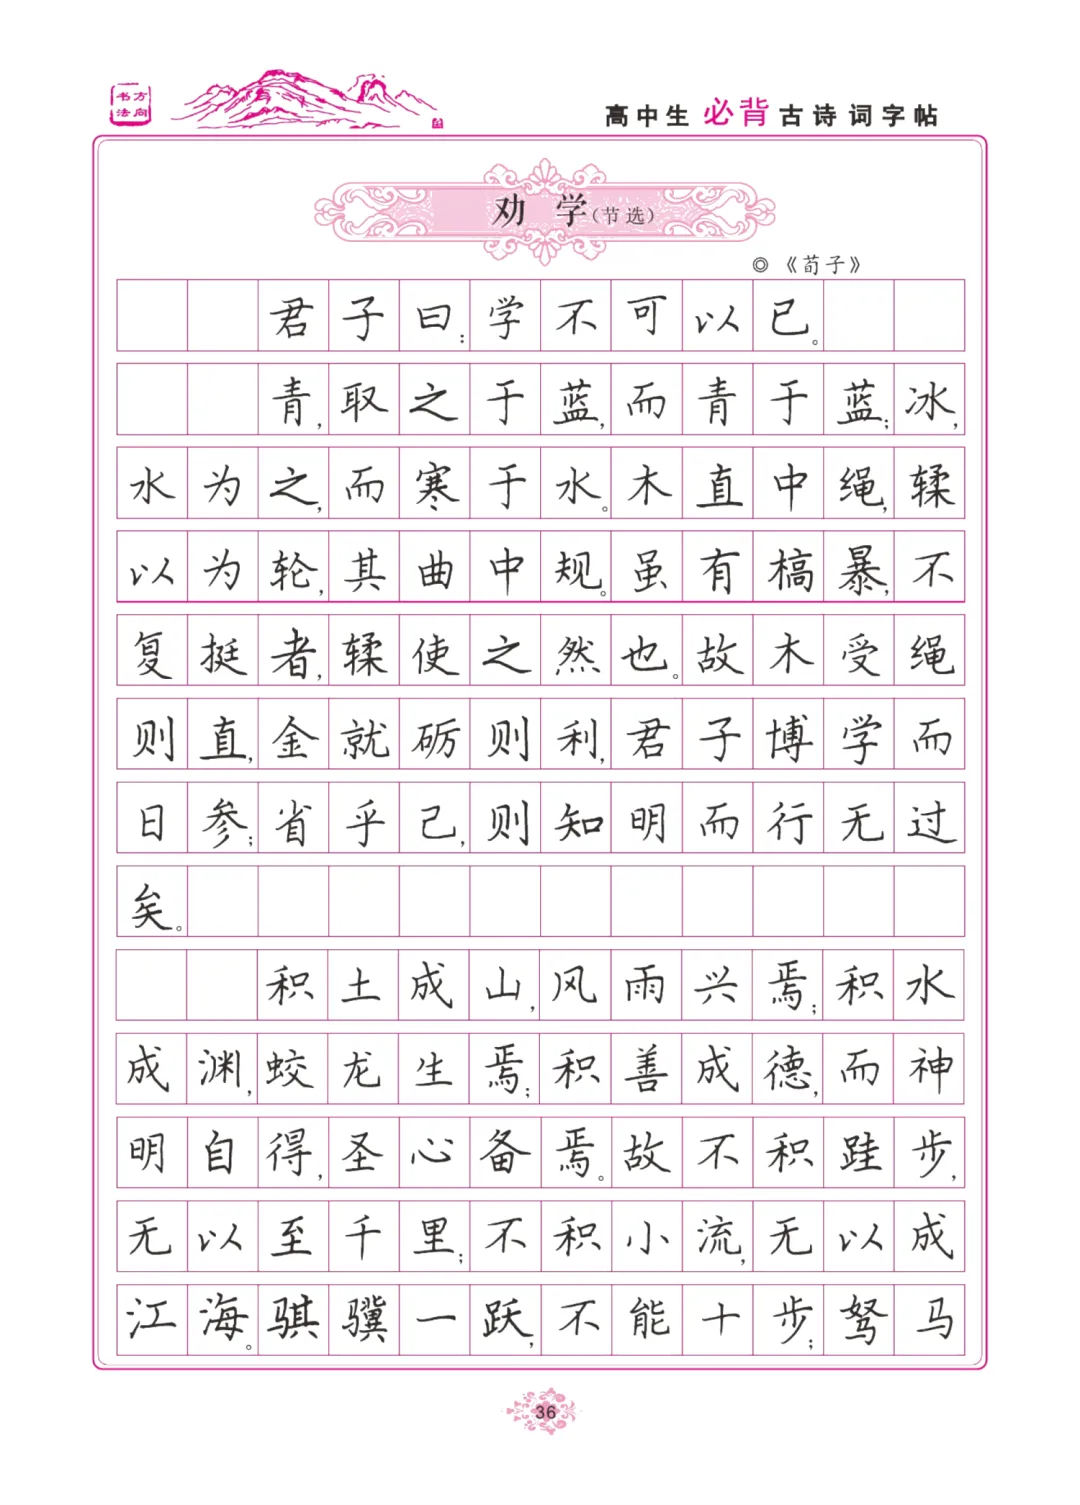 方向书法
高中生必背古诗词字帖
劝学(节选)
◎《荀子》
君子曰:学不可以已。
青,取之于蓝,而青于蓝;冰,
水为之,而寒于水。木直中绳,𫐓
以为轮,其曲中规。虽有槁暴,不
复挺者,𫐓使之然也。故木受绳
则直,金就砺则利,君子博学而
日参;省乎己,则知明而行无过
矣。
积土成山,风雨兴焉;积水
成渊,蛟龙生焉;积善成德,而神
明自得,圣心备焉。故不积跬步,
无以至千里;不积小流,无以成
江海。骐骥一跃,不能十步;驽马
36